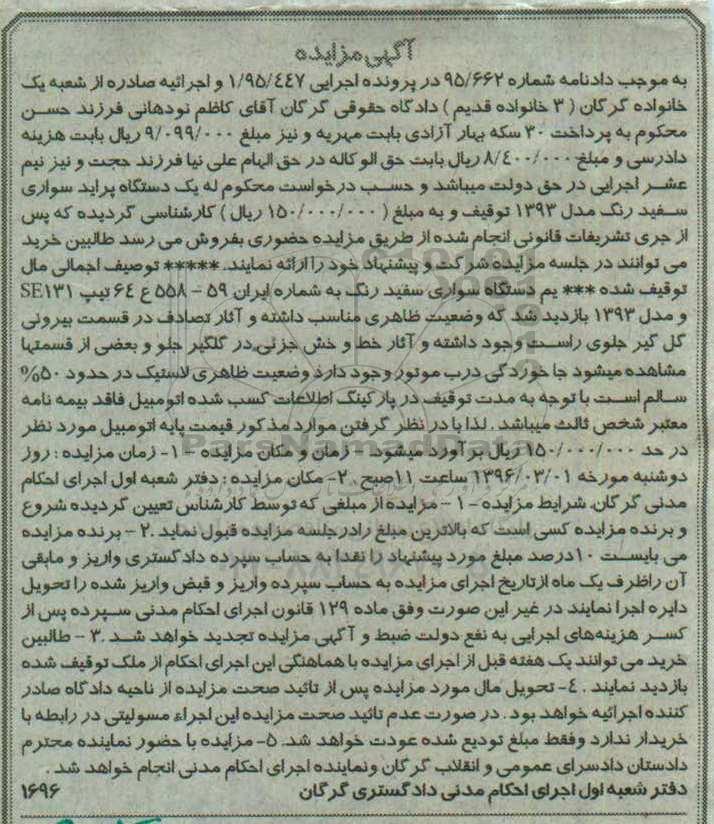 آگهی مزایده
به موجب دادنامه شماره ۹۵/۶۶۲ در پرونده اجرایی ۱/۹۵/۴۴۷ و اجرائیه صادره از شعبه یک
خانواده گرگان ( ۳ خانواده قدیم ) دادگاه حقوقی گرگان آقای کاظم نودهانی فرزند حسن
محکوم به پرداخت ۳۰ سکه بهار آزادی بابت مهریه و نیز مبلغ ۹/۰۹۹/۰۰۰ ریال بابت هزینه
دادرسی و مبلغ ۸/۴۰۰/۰۰۰ ریال بابت حق الوکاله در حق الهام علی نیا فرزند حجت و نیز نیم
عشر اجرایی در حق دولت میباشد و حسب درخواست محکوم له یک دستگاه پراید سواری
سفید رنگ مدل ۱۳۹۳ توقیف و به مبلغ ( ۱۵۰/۰۰۰/۰۰۰ ریال ) کارشناسی گردیده که پس
از جری تشریفات قانونی انجام شده از طریق مزایده حضوری بفروش می رسد طالبین خرید
می توانند در جلسه مزایده شرکت و پیشنهاد خود را ارائه نمایند. ***** توصیف اجمالی مال
توقیف شده *** یم دستگاه سواری سفید رنگ به شماره ایران ۵۹ - ۵۵۸ ع ۶۴ تیپ SE۱۳۱
و مدل ۱۳۹۳ بازدید شد که وضعیت ظاهری مناسب داشته و آثار تصادف در قسمت بیرونی
گل گیر جلوی راست وجود داشته و آثار خط و خش جزئی در گلگیر جلو و بعضی از قسمتها
مشاهده میشود جا خوردگی درب موتور وجود دارد وضعیت ظاهری لاستیک در حدود ۵۰%
سالم است با توجه به مدت توقیف در پارکینگ اطلاعات کسب شده اتومبیل فاقد بیمه نامه
معتبر شخص ثالث میباشد . لذا با در نظر گرفتن موارد مذکور قیمت پایه اتومبیل مورد نظر
در حد ۱۵۰/۰۰۰/۰۰۰ ریال برآورد میشود - زمان و مکان مزایده - ۱- زمان مزایده : روز
دوشنبه مورخه ۱۳۹۶/۰۳/۰۱ ساعت ۱۱صبح ۲۰- مکان مزایده : دفتر شعبه اول اجرای احکام
مدنی گرگان. شرایط مزایده - ۱ - مزایده از مبلغی که توسط کارشناس تعیین گردیده شروع
و برنده مزایده کسی است که بالاترین مبلغ رادرجلسه مزایده قبول نماید .۲ - برنده مزایده
می بایست ۱۰درصد مبلغ مورد پیشنهاد را نقدا به حساب سپرده دادگستری واریز و مابقی
آن راظرف یک ماه ازتاریخ اجرای مزایده به حساب سپرده واریز و قبض واریز شده را تحویل
دایره اجرا نمایند در غیر این صورت وفق ماده ۱۲۹ قانون اجرای احکام مدنی سپرده پس از
کسر هزینه‌های اجرایی به نفع دولت ضبط و آگهی مزایده تجدید خواهد شد .۳ - طالبین
خرید می توانند یک هفته قبل از اجرای مزایده با هماهنگی این اجرای احکام از ملک توقیف شده
بازدید نمایند . ۴- تحویل مال مورد مزایده پس از تائید صحت مزایده از ناحیه دادگاه صادر
کننده اجرائیه خواهد بود . در صورت عدم تائید صحت مزایده این اجراء مسولیتی در رابطه با
خریدار ندارد وفقط مبلغ تودیع شده عودت خواهد شد. ۵- مزایده با حضور نماینده محترم
دادستان دادسرای عمومی و انقلاب گرگان ونماینده اجرای احکام مدنی انجام خواهد شد .
دفتر شعبه اول اجرای احکام مدنی دادگستری گرگان ۱۶۹۶
ParsNamadData